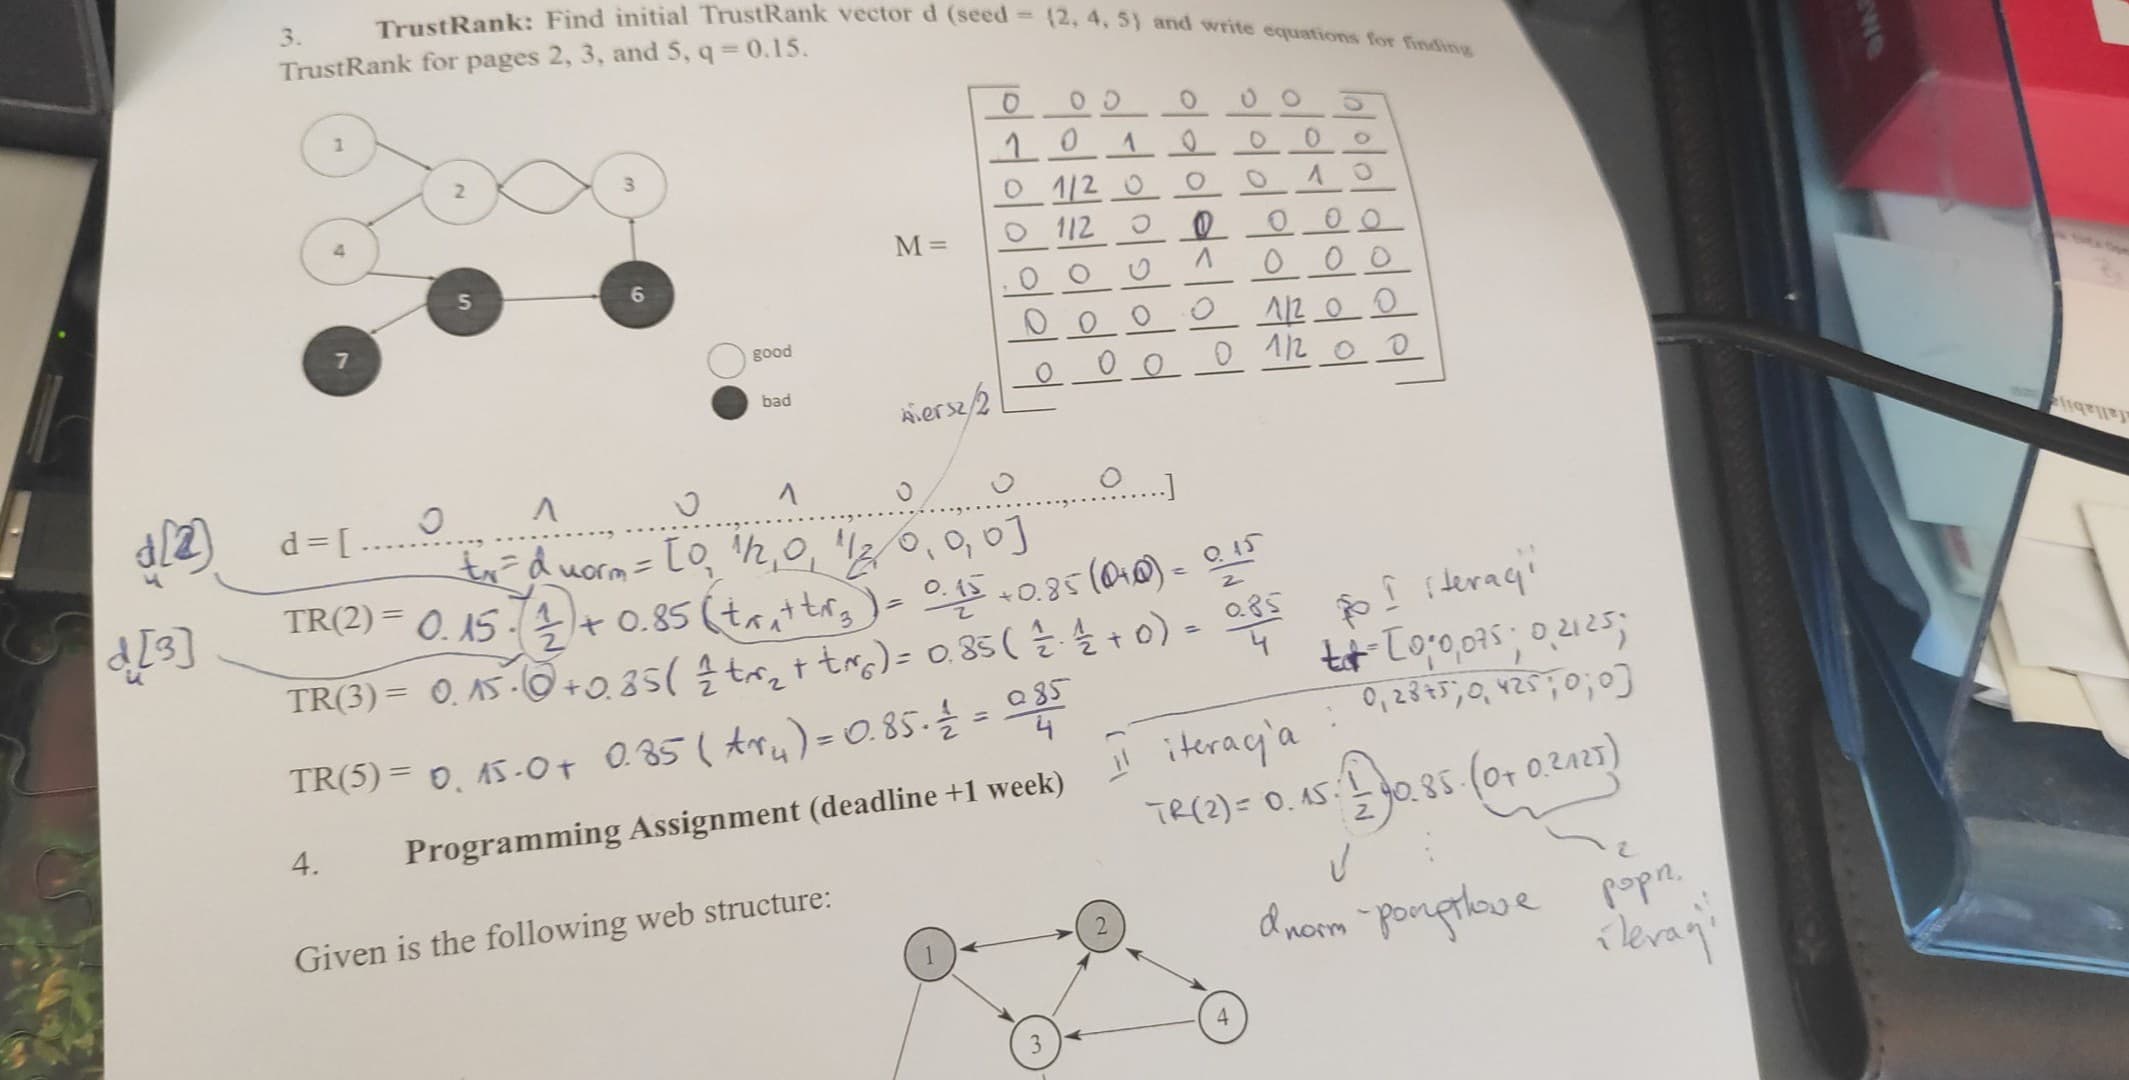 3. TrustRank: Find initial TrustRank vector d (seed = {2, 4, 5} and write equations for finding
TrustRank for pages 2, 3, and 5, q = 0.15.
1
2
3
4
5
6
7
good
bad
M =
0 0 0 0 0 0 0
1 0 1 0 0 0 0
0 1/2 0 0 0 1 0
0 1/2 0 0 0 0 0
0 0 0 1 0 0 0
0 0 0 0 1/2 0 0
0 0 0 0 1/2 0 0
wiersz/2
d = [ 0, 1, 0, 1, 0, 0, 0 ]
tr = d norm = [0, 1/2, 0, 1/2, 0, 0, 0]
d[2]
TR(2) = 0.15 · 1/2 + 0.85 (tr1 + tr3) = 0.15/2 + 0.85 (0+0) = 0.15/2
d[3]
TR(3) = 0.15 · 0 + 0.85 ( 1/2 tr2 + tr6) = 0.85 ( 1/2 · 1/2 + 0) = 0.85/4
TR(5) = 0.15 · 0 + 0.85 ( tr4 ) = 0.85 · 1/2 = 0.85/4
po I iteracji
= [0; 0,075; 0,2125;
0,2875; 0,425; 0; 0]
II iteracja :
TR(2) = 0.15 · 1/2 + 0.85 · (0 + 0.2125)
dnorm -
z
popn.
iteracji
4. Programming Assignment (deadline +1 week)
Given is the following web structure:
1
2
3
4